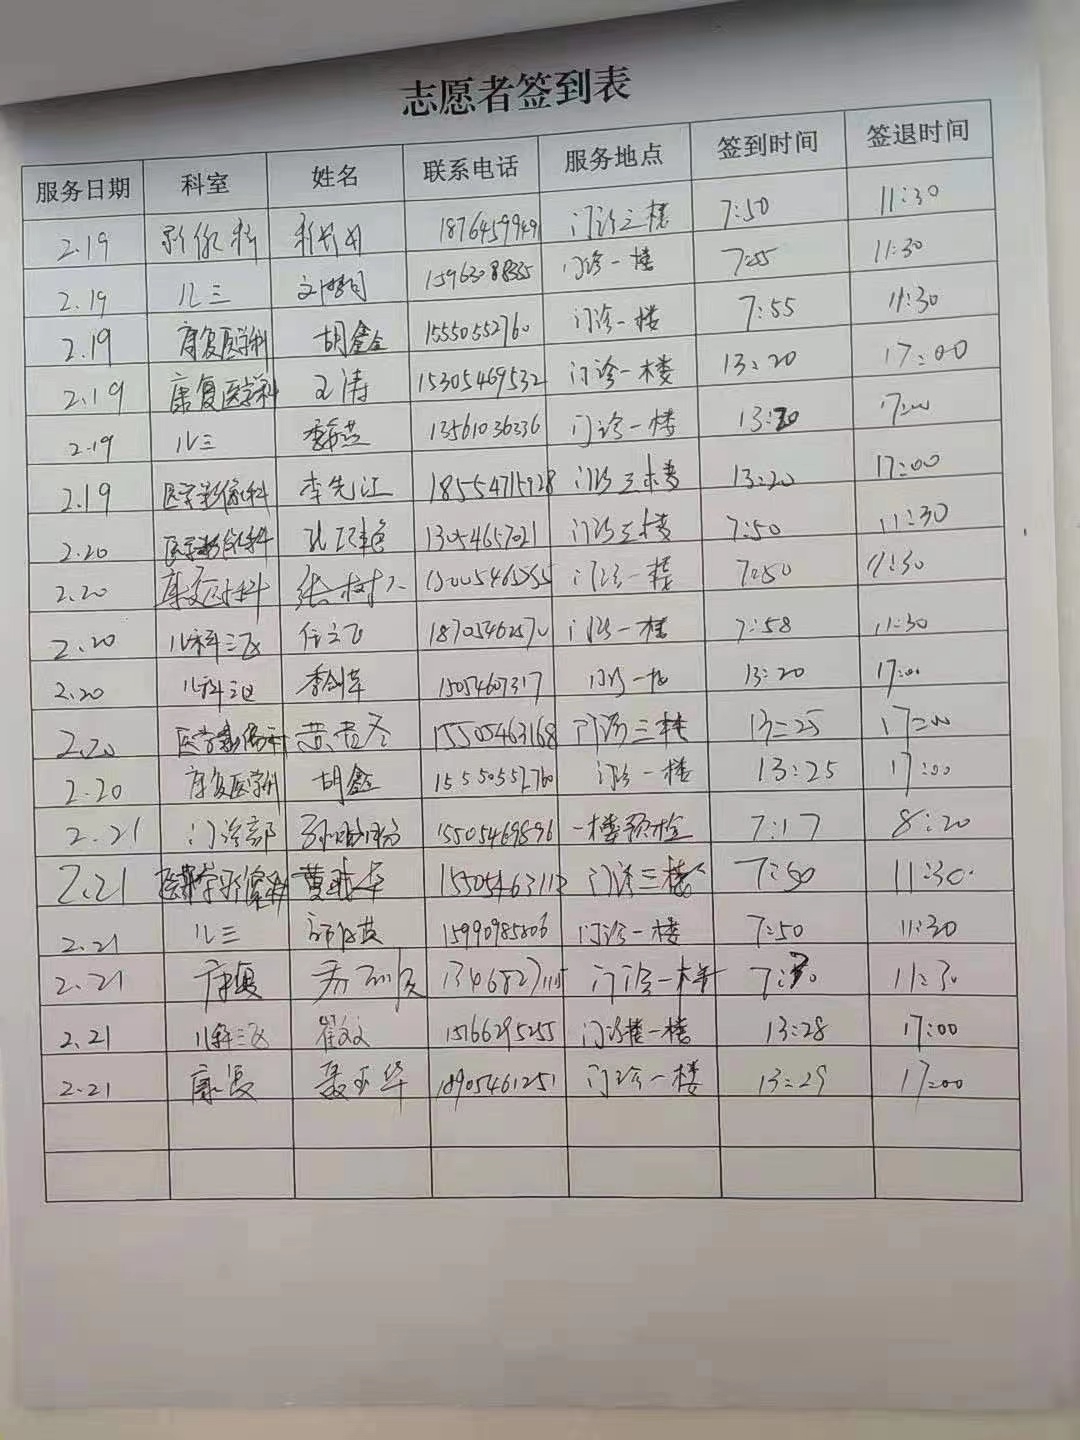 志愿者签到表
服务日期 科室 姓名 联系电话 服务地点 签到时间 签退时间
2.19 影像科 18764599949 门诊三楼 7:50 11:30
2.19 儿三 门诊一楼 7:55 11:30
2.19 康复医学科 胡鑫 15550552760 门诊一楼 7:55 11:30
2.19 康复医学科 王涛 15305469532 门诊一楼 13:20 17:00
2.19 儿三 13561036336 门诊一楼 13:20 17:00
2.19 医学影像科 李先江 18554715928 门诊三楼 13:20 17:00
2.20 医学影像科 13054657021 门诊三楼 7:50 11:30
2.20 康复医学科 张树人 门诊一楼 7:50 11:30
2.20 儿科三区 任立飞 18705462570 门诊一楼 7:58 11:30
2.20 儿科三区 李剑萍 15054607317 门诊一楼 13:20 17:00
2.20 医学影像科 15505463168 门诊三楼 13:25 17:00
2.20 康复医学科 胡鑫 15550552760 门诊一楼 13:25 17:00
2.21 门诊部 15505469896 一楼预检 7:17 8:20
2.21 医学影像科 门诊三楼 7:50 11:30
2.21 儿三 15990985806 门诊一楼 7:50 11:30
2.21 康复 门诊一楼 11:30
2.21 儿科三区 崔文文 15166295255 门诊楼一楼 13:28 17:00
2.21 康复 聂玉华 18905461251 门诊一楼 13:29 17:00